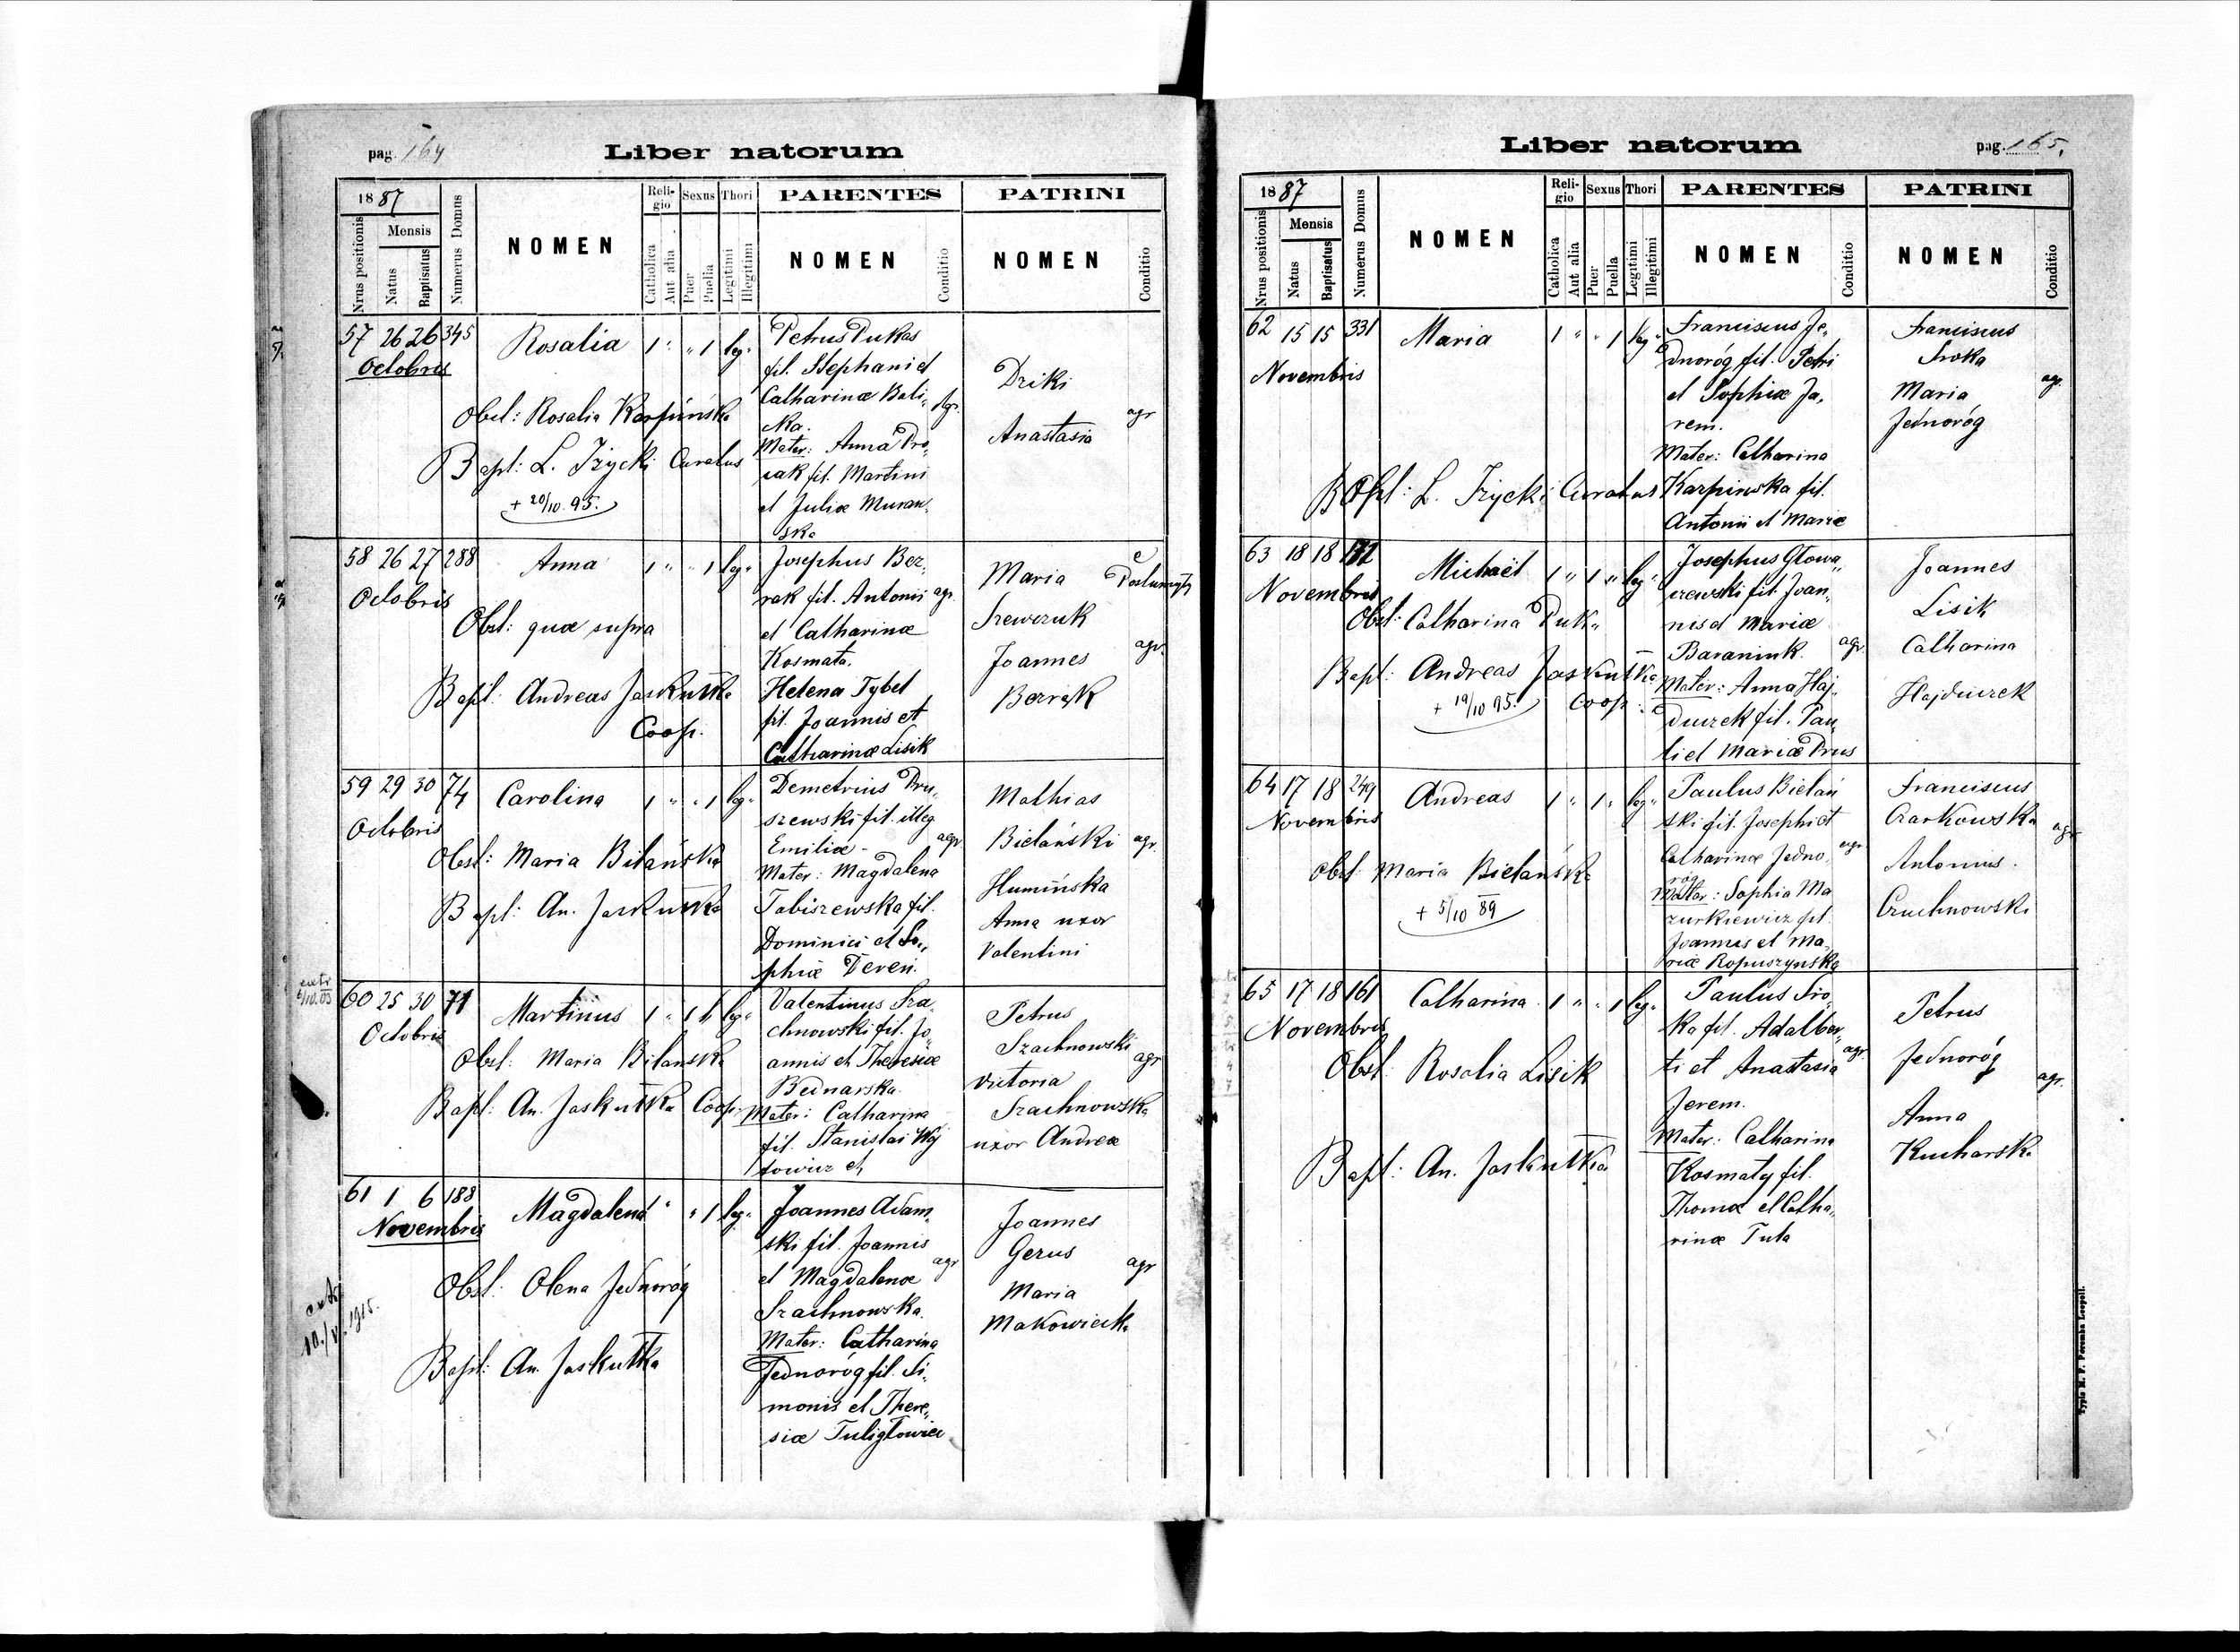 pag. 164
Liber natorum
1887
Nrus positionis
Mensis
Natus
Baptisatus
Numerus Domus
NOMEN
Religio
Catholica
Aut alia
Sexus
Puer
Puella
Thori
Legitimi
Illegitimi
PARENTES
NOMEN
Conditio
PATRINI
NOMEN
Conditio
57 26 26 345
Octobris
Rosalia
1 " " 1 leg"
Obst: Rosalia Karpińska
Bapt: L. Iżycki Curatus
+ 20/10. 95.
Petrus Dukas
fil. Stephani et
Catharinæ Bali„
ka.
Agr.
Mater: Anna Pro„
sak fil. Martini
et Juliæ Muran„
ska
Dziki
Anastasia
agr
58 26 27 288
Octobris
Anna
1 " " 1 leg"
Obst: quæ supra
Bapt: Andreas Jaskułka
Coop.
Josephus Ber„
rak fil. Antonii
agr.
et Catharinæ
Kosmata.
Helena Tybel
fil. Joannis et
Catharinæ Lisik
Maria
Szewczuk
Joannes
Berrak
agr.
59 29 30 74
Octobris
Carolina
1 " " 1 leg"
Obst: Maria Bilańska
Bapt: An. Jaskułka
Demetrius Pru„
szewski fil. illeg
Emiliæ -
agr
Mater: Magdalena
Tabiszewska fil.
Dominici et So„
phiæ Deren.
Mathias
Bielański
agr.
Humińska
Anna uxor
Valentini
60 25 30 71
Octobris
Martinus
Obst: Maria Bilanska
Bapt: An. Jaskułka Coop.
Valentinus Sza„
chnowski fil. Jo„
annis et Theresiæ
Bednarska.
Mater: Catharina
fil. Stanislai Wój
towicz et
Petrus
Szachnowski
agr
Victoria
Szachnowska
uxor Andreæ
61 1 6 188
Novembris
Magdalena
" " 1 leg"
Obst: Olena Jednoróg
Bapt: An. Jaskułka
Joannes Adam„
ski fil. Joannis
et Magdalenæ
agr
Szachnowska.
Mater: Catharina
Jednoróg fil. Si„
monis et There„
siæ Tuligłowicz
Joannes
Gerus
agr
Maria
Makowiecka
10./V. 1915.
pag. 165.
Liber natorum
1887
Nrus positionis
Mensis
Natus
Baptisatus
Numerus Domus
NOMEN
Religio
Catholica
Aut alia
Sexus
Puer
Puella
Thori
Legitimi
Illegitimi
PARENTES
NOMEN
Conditio
PATRINI
NOMEN
Conditio
62 15 15 331
Novembris
Maria
1 " " 1 leg"
Bapt: L. Iżycki Curatus
Franciscus Je„
dnoróg fil. Petri
et Sophiæ Ja„
rem.
Mater: Catharina
Karpinska fil.
Antonii et Mariæ
Franciscus
Sroka
Maria
Jednoróg
agr.
63 18 18
Novembris
Michaël
1 " 1 " leg"
Obst: Catharina Duka
Bapt: Andreas Jaskułka
Coop.
+ 19/10 95.
Josephus Głowa„
czewski fil. Joan„
nis et Mariæ
Baraniuk.
agr
Mater: Anna Haj„
duczek fil. Pau„
li et Mariæ Prus
Joannes
Lisik
Catharina
Hajduczek
64 17 18 249
Novembris
Andreas
1 " 1 " leg"
Obst: Maria Bielańska
+ 5/10 89
Paulus Bielań
ski fil. Josephi et
Catharinæ Jedno„
róg
agr
Mater: Sophia Ma
zurkiewicz fil.
Joannis et Ma„
riæ Ropuszynska
Franciscus
Czarkowska
agr
Antonius
Czuchnowski
65 17 18 161
Novembris
Catharina
1 " " 1 leg"
Obst: Rosalia Lisik
Bapt: An. Jaskułka
Paulus Sro„
ka fil. Adalber„
ti et Anastasia
agr.
Jerem.
Mater: Catharina
Kosmaty fil.
Thomæ et Catha„
rinæ Tuła
Petrus
Jednoróg
agr.
Anna
Kucharska
Typis H. F. Poremba Leopoli.